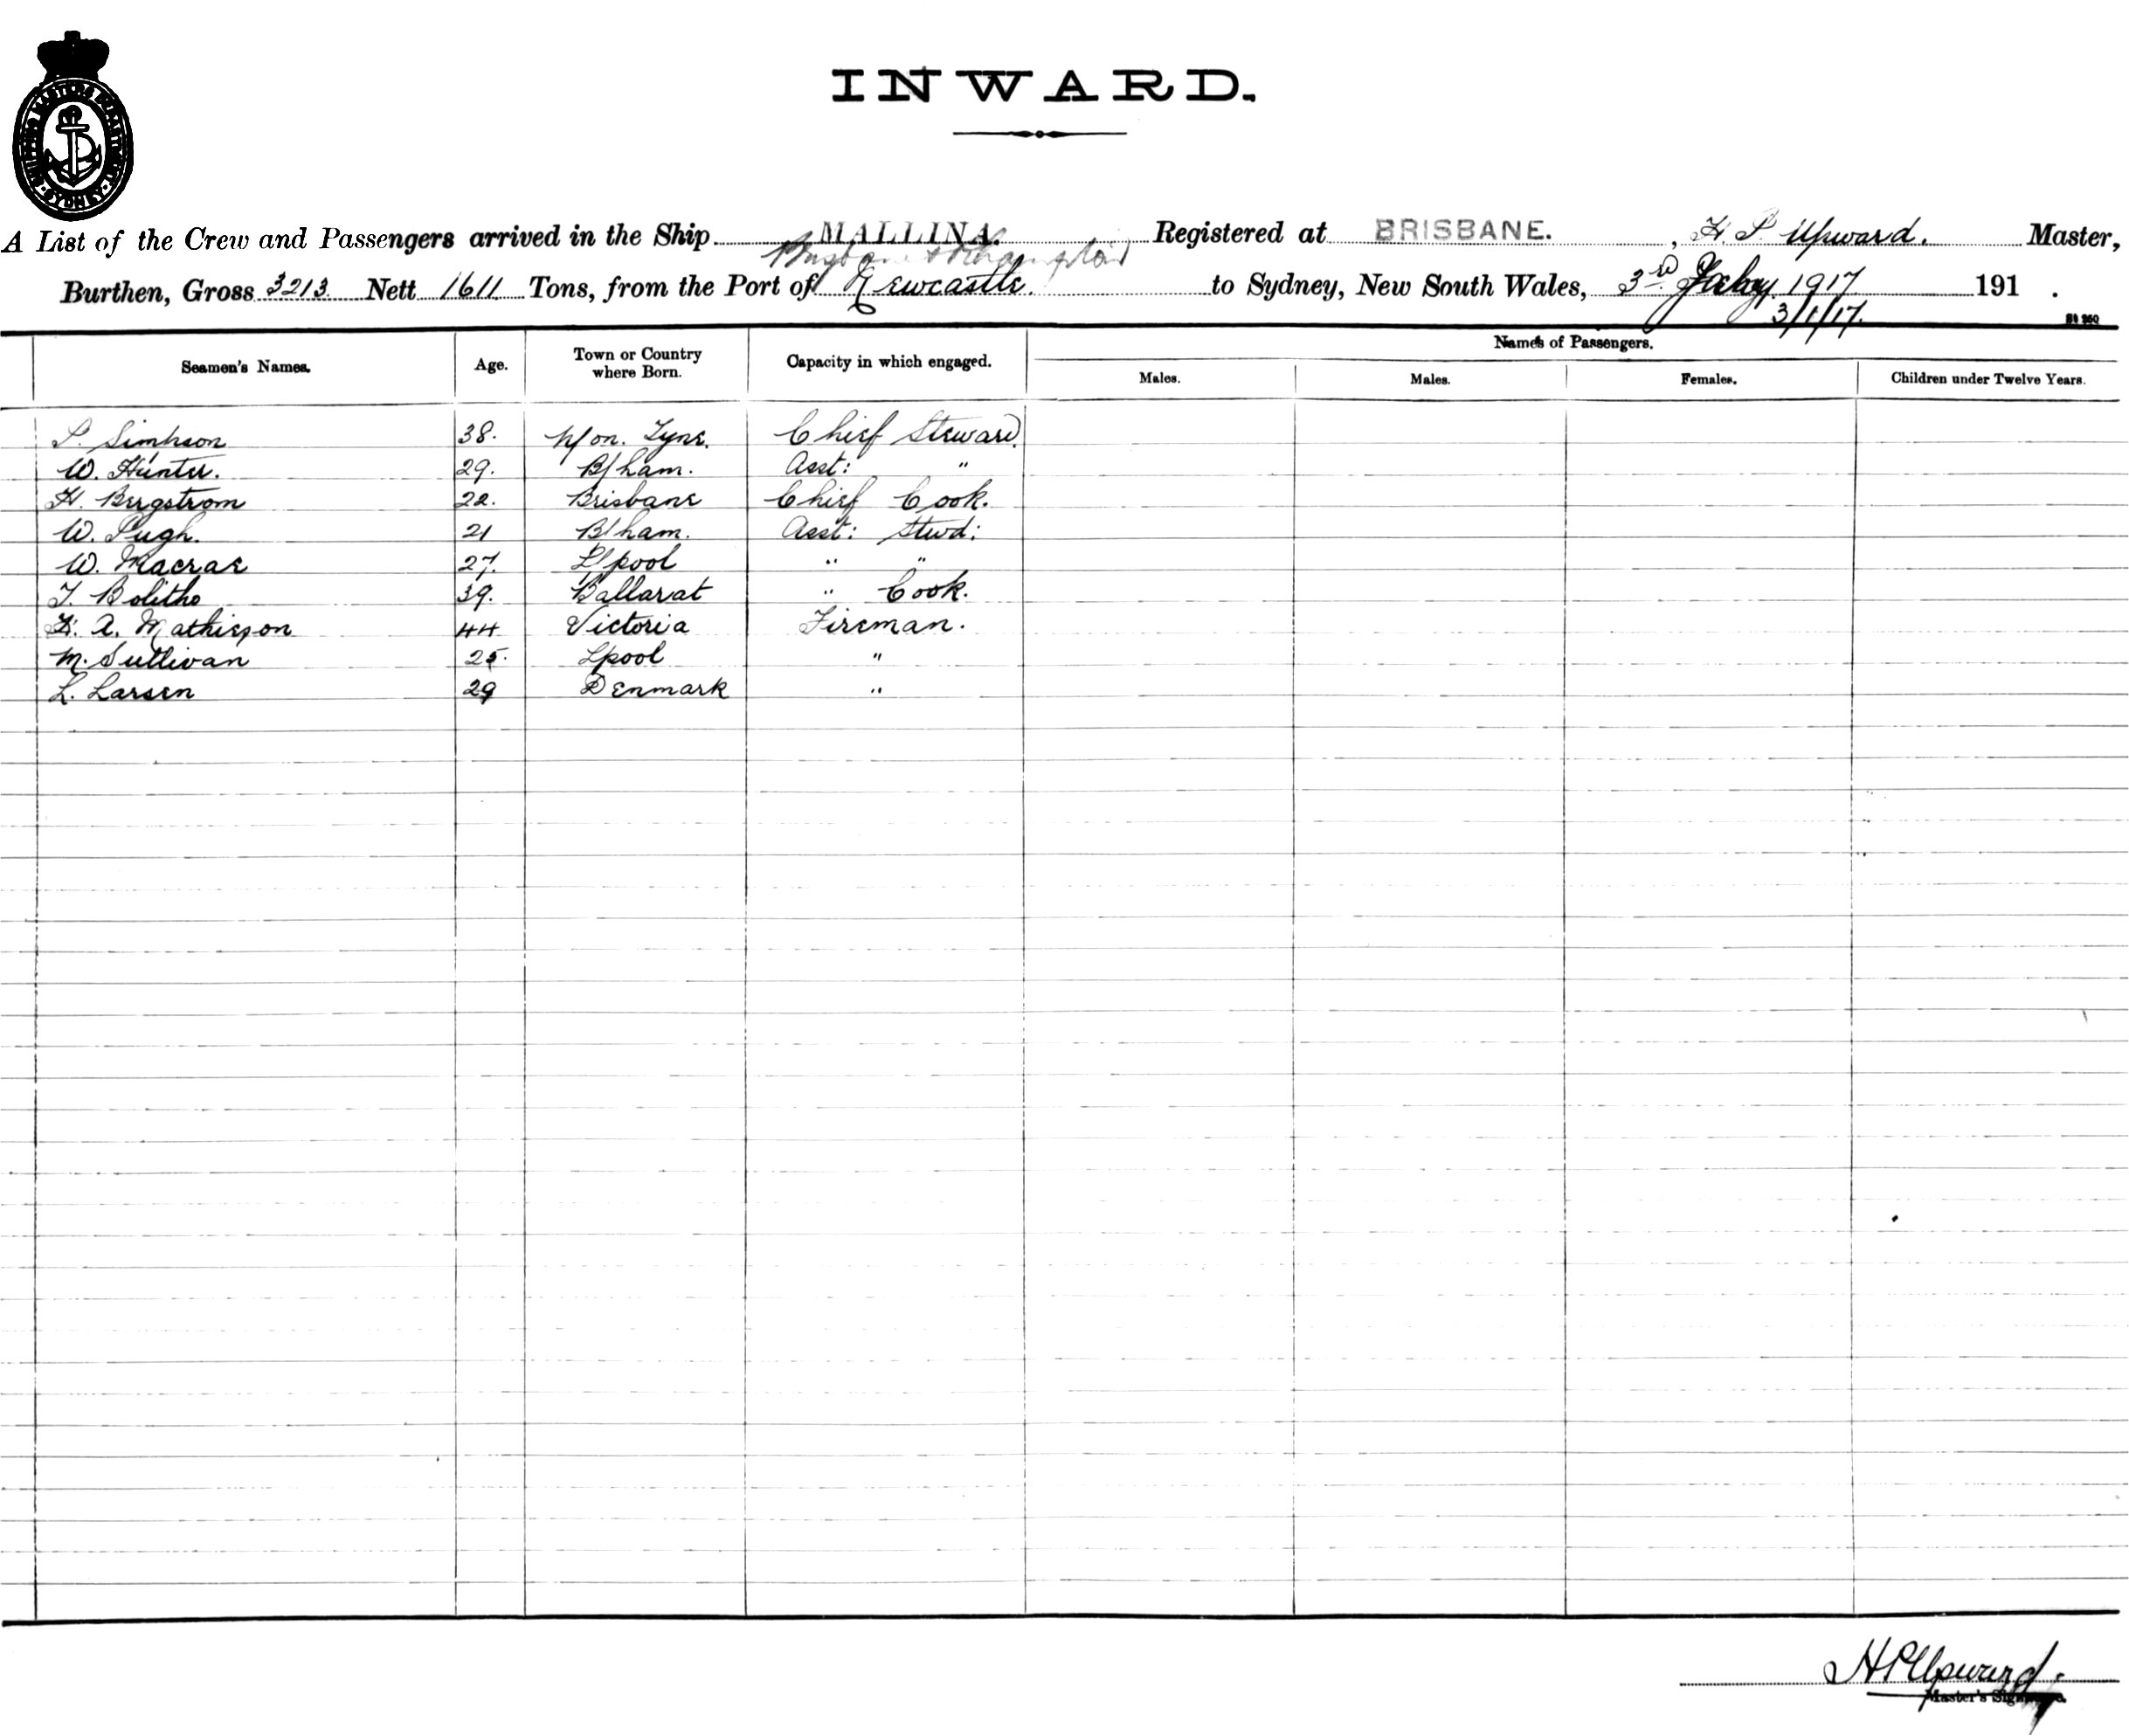 SHIPPING MASTERS DEPARTMENT SYDNEY
INWARD.
A List of the Crew and Passengers arrived in the Ship MALLINA. Registered at BRISBANE. , H. P. Upward. Master,
Burthen, Gross 3213 Nett 1611 Tons, from the Port of Newcastle. to Sydney, New South Wales, 3rd 1917 191 .
3/1/17.
Names of Passengers.
Seamen's Names. Age. Town or Country where Born. Capacity in which engaged. Males. Males. Females. Children under Twelve Years.
P. Simpson 38. N/on. Tyne. Chief Steward.
W. Hunter. 29. B/ham. Asst: "
H. Bergstrom 22. Brisbane Chief Cook.
W. Pugh. 21 B/ham. Asst: Stwd:
W. Macrae 27. L'pool " "
T. Bolitho 39. Ballarat " Cook.
A. Mathieson 44 Victoria Fireman.
M. Sullivan 25. Lpool "
L. Larsen 29 Denmark "
HP Upward.
Master's